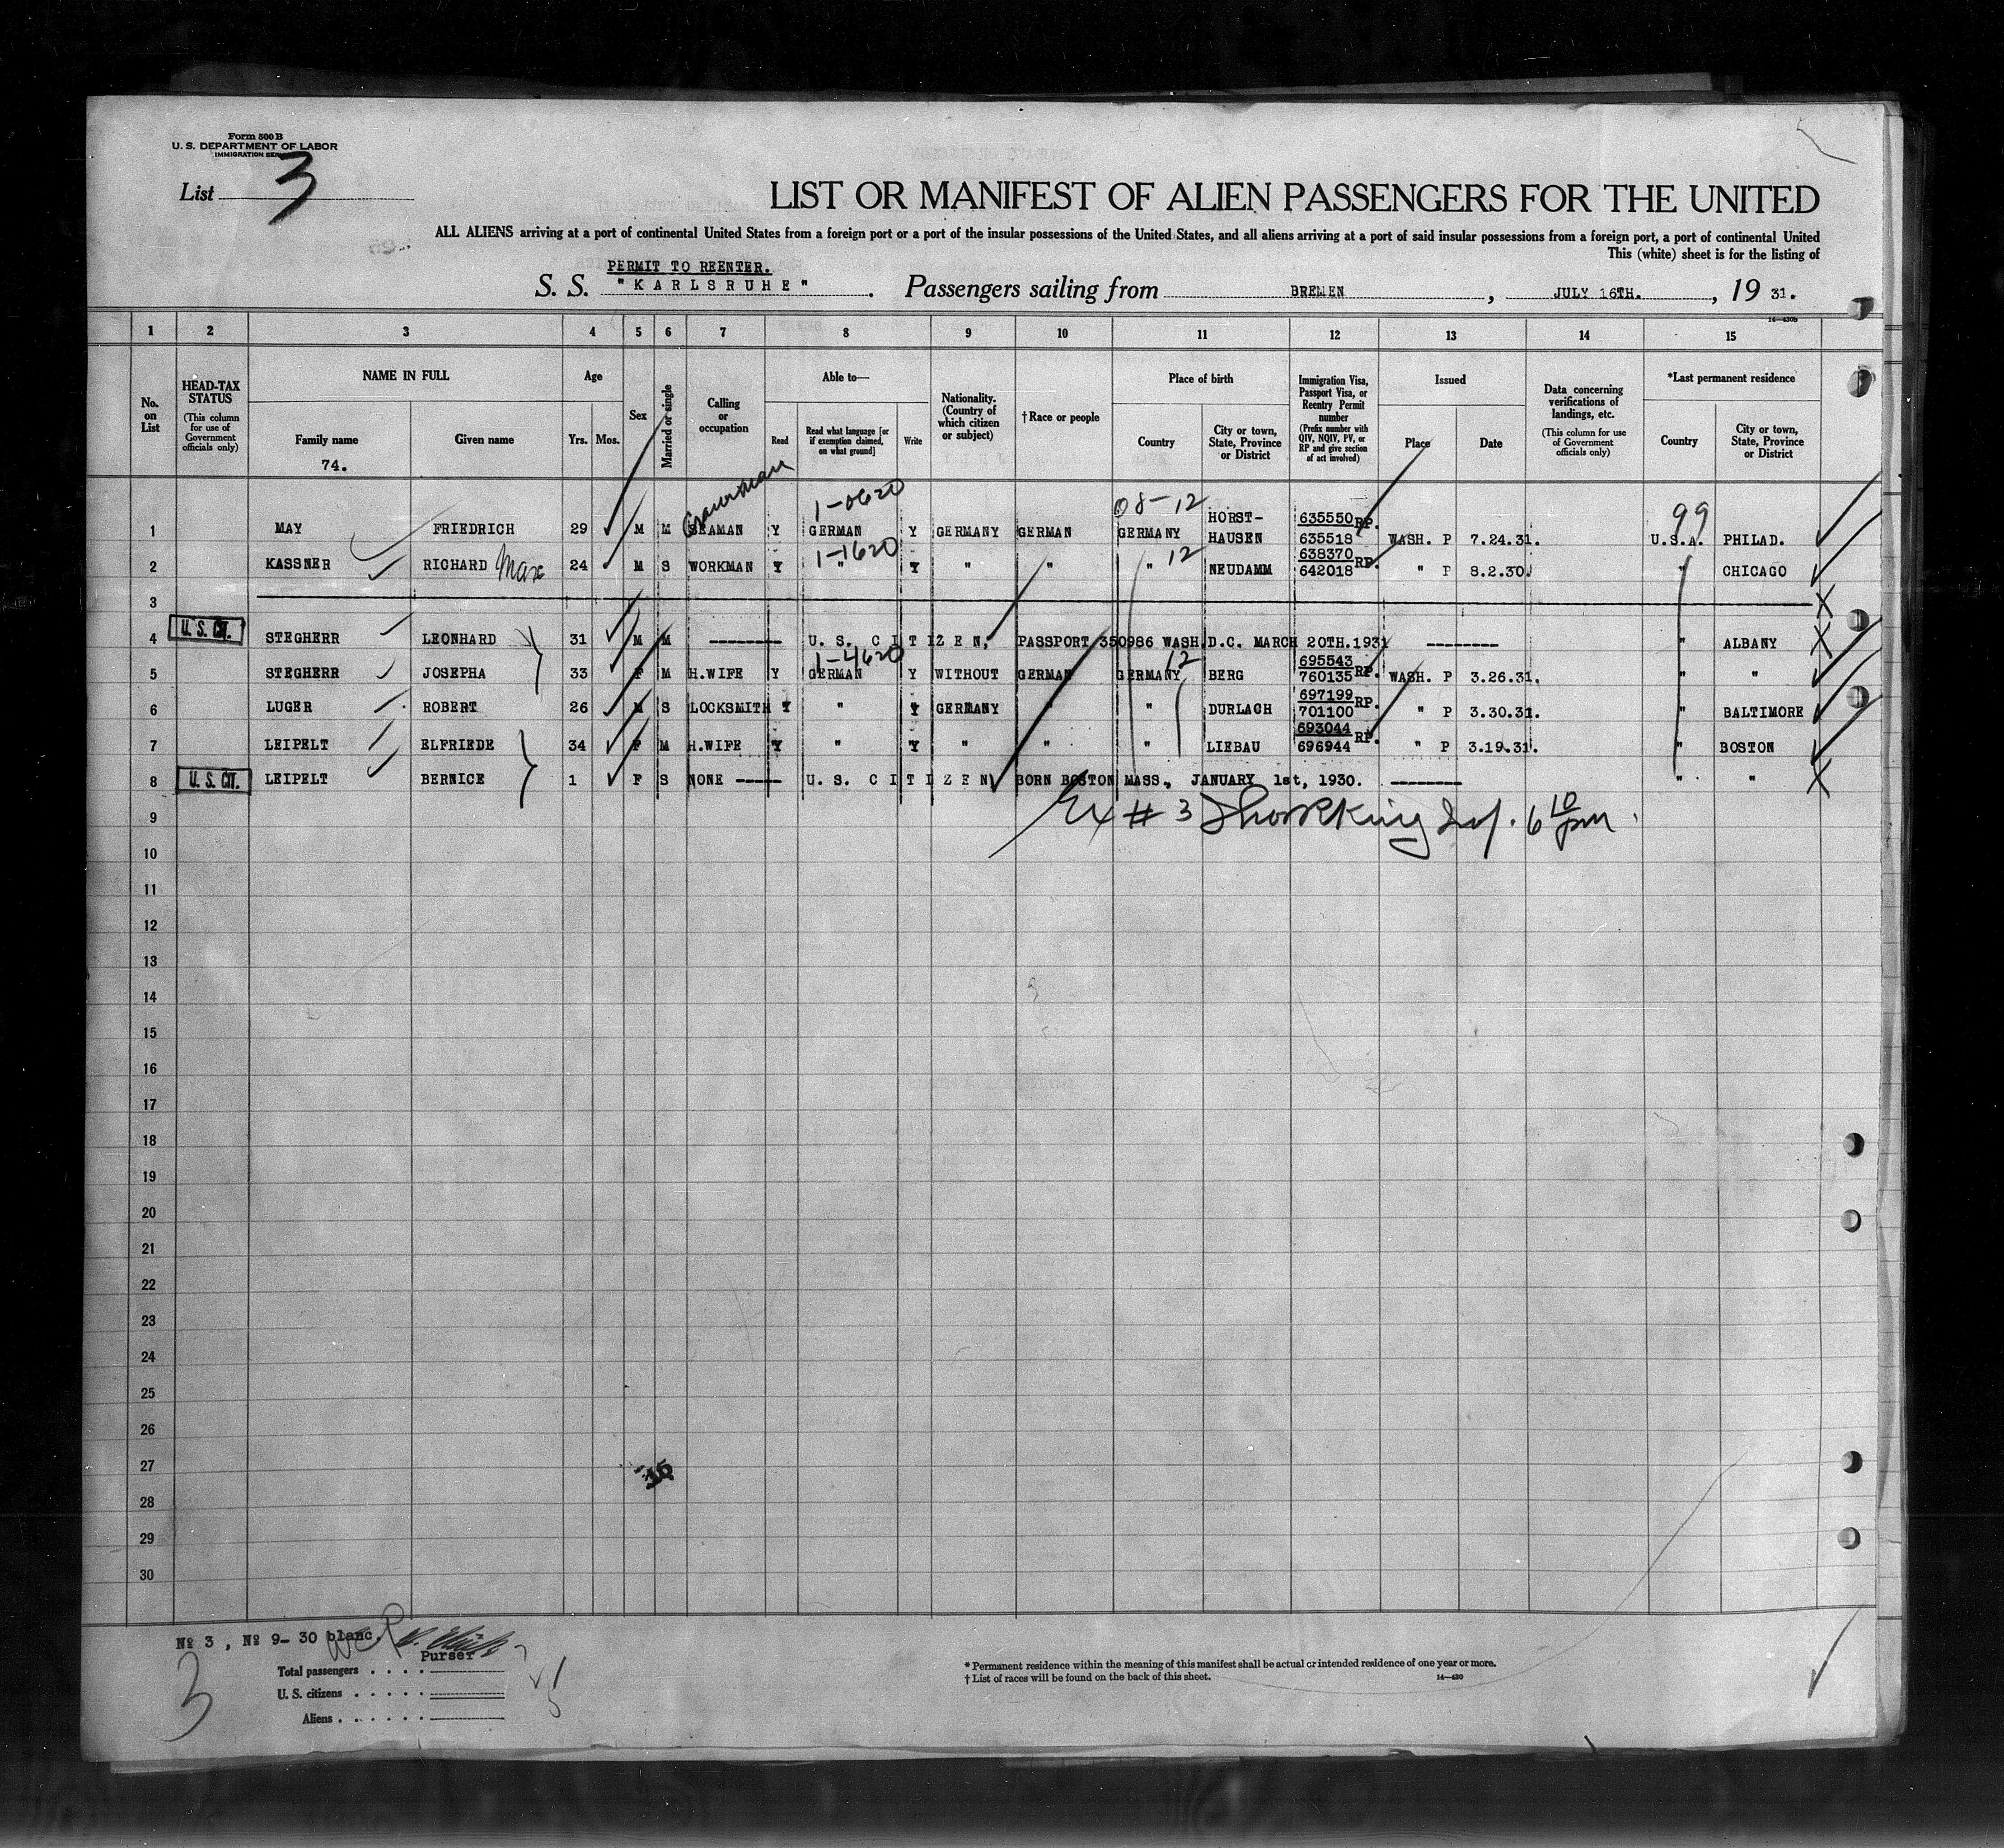 Form 500 B
U. S. DEPARTMENT OF LABOR
IMMIGRATION
List 3
LIST OR MANIFEST OF ALIEN PASSENGERS FOR THE UNITED
ALL ALIENS arriving at a port of continental United States from a foreign port or a port of the insular possessions of the United States, and all aliens arriving at a port of said insular possessions from a foreign port, a port of continental United
This (white) sheet is for the listing of
PERMIT TO REENTER.
S. S. "KARLSRUHE". Passengers sailing from BREMEN, JULY 16TH., 19 31.
1 2 3 4 5 6 7 8 9 10 11 12 13 14 15
No. on List
HEAD-TAX STATUS (This column for use of Government officials only)
NAME IN FULL
Family name Given name
74.
Age
Yrs. Mos.
Sex
Married or single
Calling or occupation
Able to—
Read Read what language [or if exemption claimed, on what ground] Write
Nationality. (Country of which citizen or subject)
†Race or people
Place of birth
Country City or town, State, Province or District
Immigration Visa, Passport Visa, or Reentry Permit number (Prefix number with QIV, NQIV, PV, or RP and give section of act involved)
Issued
Place Date
Data concerning verifications of landings, etc. (This column for use of Government officials only)
*Last permanent residence
Country City or town, State, Province or District
1-0620 08-12 99
1 MAY FRIEDRICH 29 M M SEAMAN Y GERMAN Y GERMANY GERMAN GERMANY HORST-HAUSEN 635550 635518 RP. WASH. P 7.24.31. U.S.A. PHILAD.
1-1620 12
2 KASSNER RICHARD Max 24 M S WORKMAN Y " Y " " " NEUDAMM 638370 642018 RP. " P 8.2.30. " CHICAGO
3
U. S. CIT.
4 STEGHERR LEONHARD 31 M M -------- U. S. CITIZEN, PASSPORT 350986 WASH. D.C. MARCH 20TH.1931 -------- " ALBANY
1-4620 12
5 STEGHERR JOSEPHA 33 F M H.WIFE Y GERMAN Y WITHOUT GERMAN GERMANY BERG 695543 760135 RP. WASH. P 3.26.31. " "
6 LUGER ROBERT 26 M S LOCKSMITH Y " Y GERMANY " " DURLACH 697199 701100 RP. " P 3.30.31. " BALTIMORE
7 LEIPELT ELFRIEDE 34 F M H.WIFE Y " Y " " " LIEBAU 693044 696944 RP. " P 3.19.31. " BOSTON
U. S. CIT.
8 LEIPELT BERNICE 1 F S NONE ----- U. S. CITIZEN BORN BOSTON MASS., JANUARY 1st, 1930. -------- " "
9 # 3 6 10 pm
10
11
12
13
14
15
16
17
18
19
20
21
22
23
24
25
26
27
28
29
30
№ 3, № 9- 30 blanc.
Purser
3
Total passengers
U. S. citizens
Aliens
* Permanent residence within the meaning of this manifest shall be actual or intended residence of one year or more.
† List of races will be found on the back of this sheet.
14—430